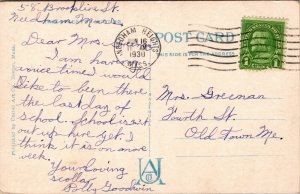 58 Brookline St.
Needham Mass.
Dear Mrs. G
I am having
nice times I would
like to been there
the last day of
school. School isn't
out up here yet. I
think it is on more
week.
Your loving
scollar
Betty Goodwin
POST CARD
THIS SIDE IS FOR THE ADDRESS
NEEDHAM HEIGHTS
JUN 16
1930
MASS.
1
Mrs. Greenan
Fourth St.
Old Town Me.